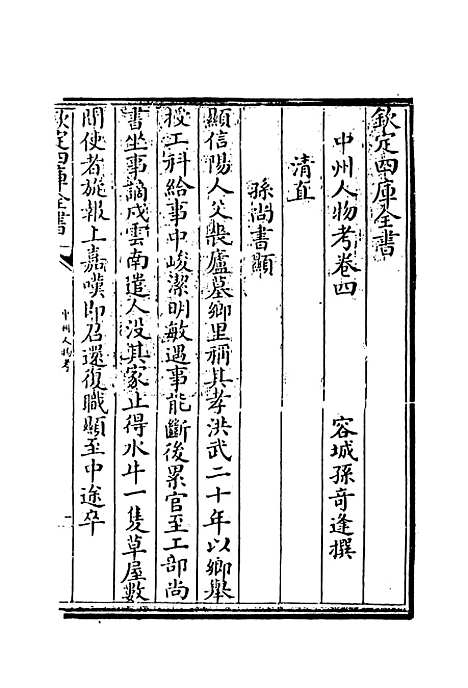 欽定四庫全書
中州人物考卷四
容城孫奇逢撰
清直
孫尚書顯
顯信陽人父喪廬墓鄉里稱其孝洪武二十年以鄉舉
授工科給事中峻潔明敏遇事能斷後累官至工部尚
書坐事謫戍雲南遣人没其家止得水牛一隻草屋數
間使者旋報上嘉嘆即召還復職顯至中途卒
欽定四庫全書
中州人物考
一